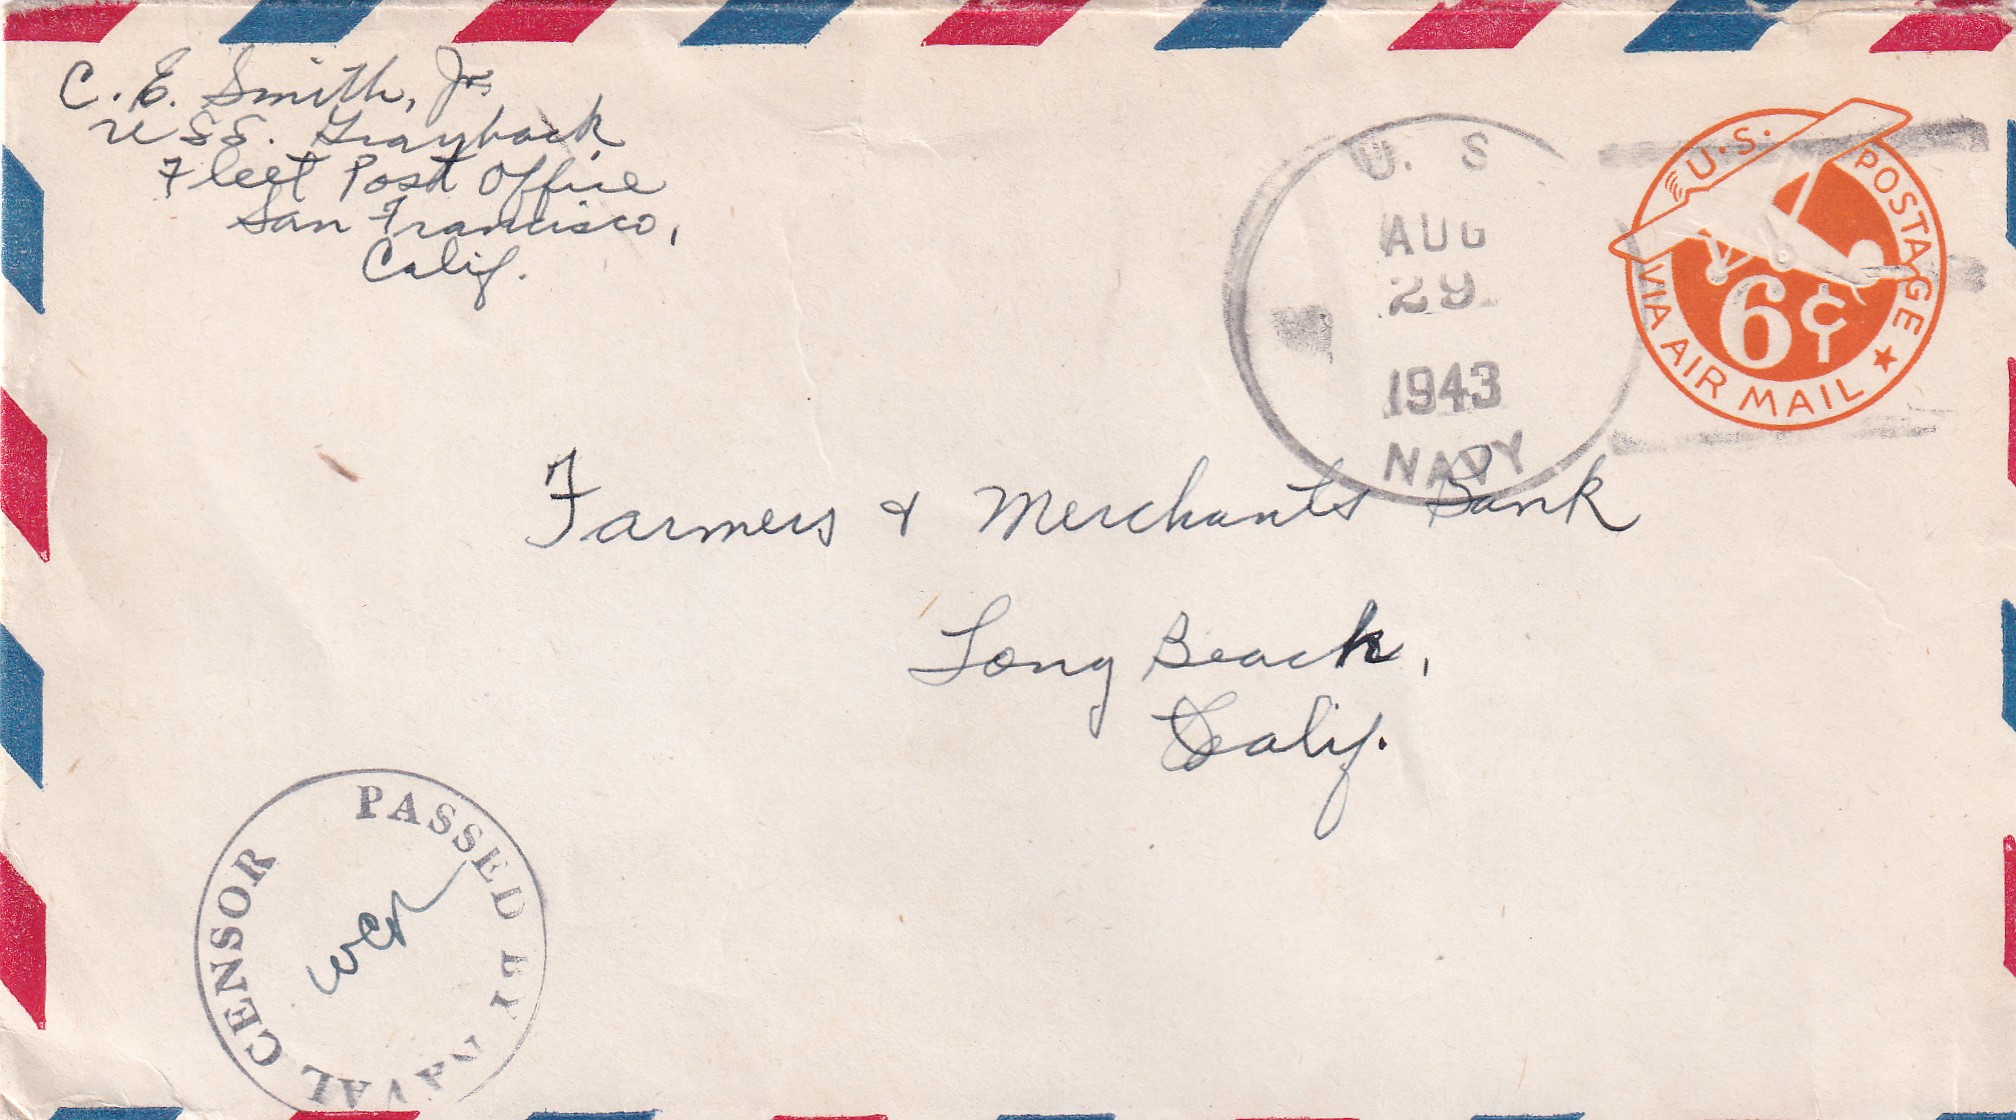 C. E. Smith, Jr.
USS. Grayback,
Fleet Post Office
San Francisco,
Calif.
U. S
AUG
29
1943
NAVY
U.S. POSTAGE
6¢
VIA AIR MAIL
Farmers & Merchants Bank
Long Beach,
Calif.
PASSED BY NAVAL CENSOR